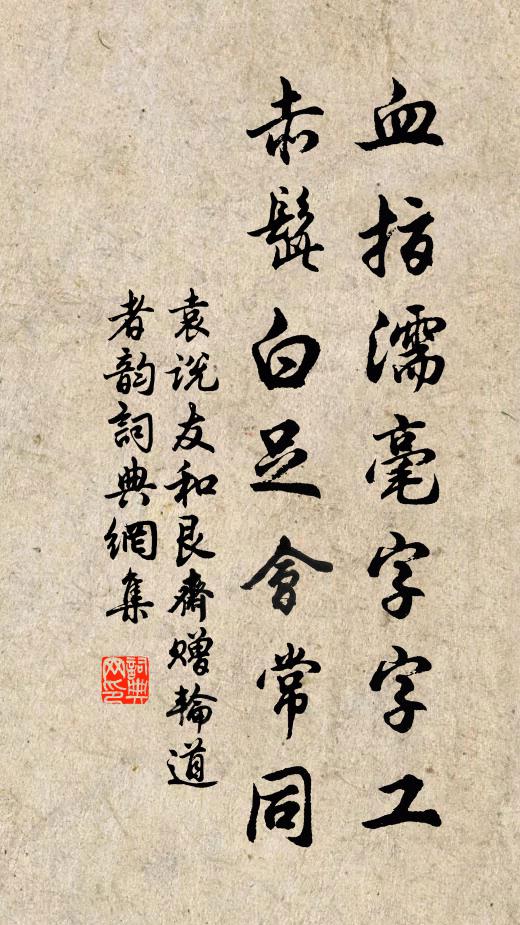 血指濡毫字字工
赤髭白足會常同
袁説友和艮齋贈輪道
者韵詞典網集
詞典
网印